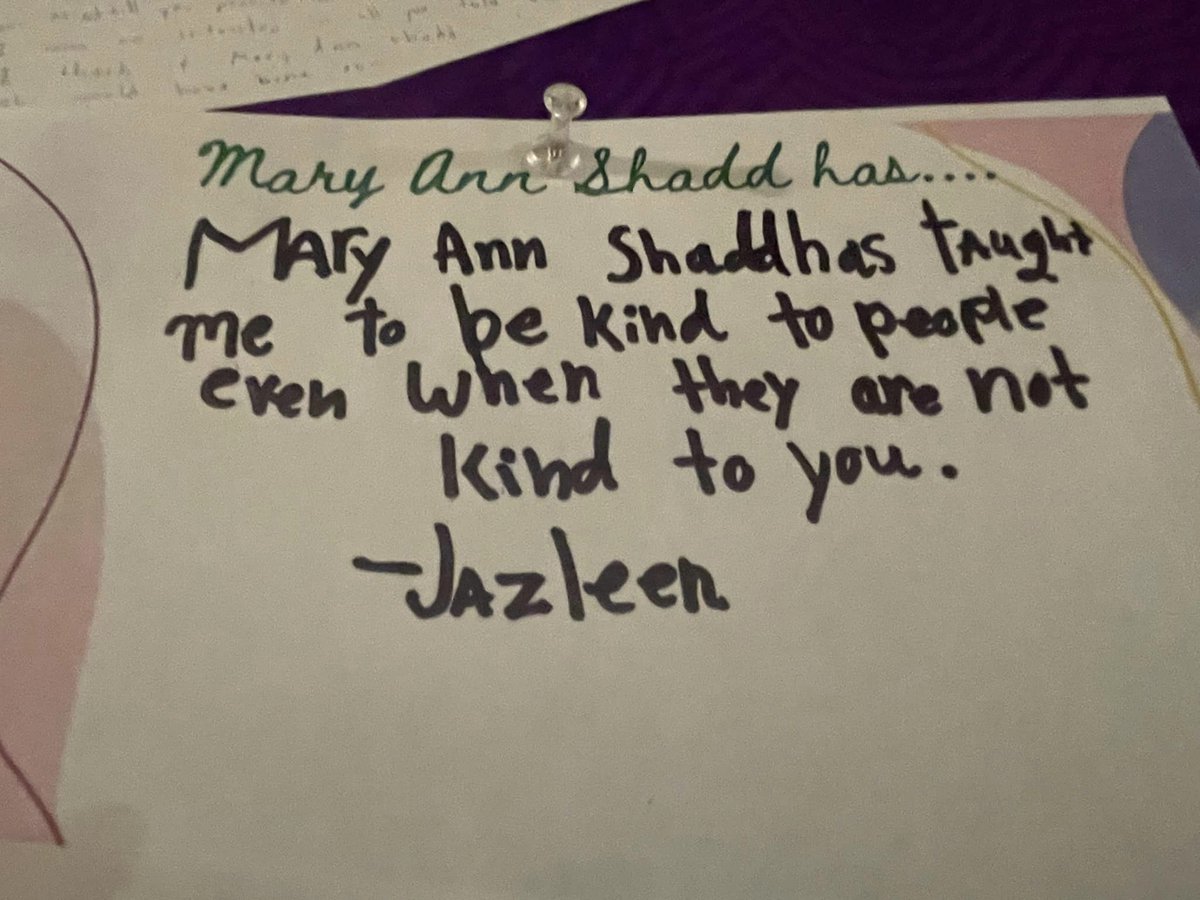 Mary Ann Shadd
would have
Mary Ann Shadd has....
Mary Ann Shadd has taught
me to be kind to people
even when they are not
kind to you.
-Jazleen